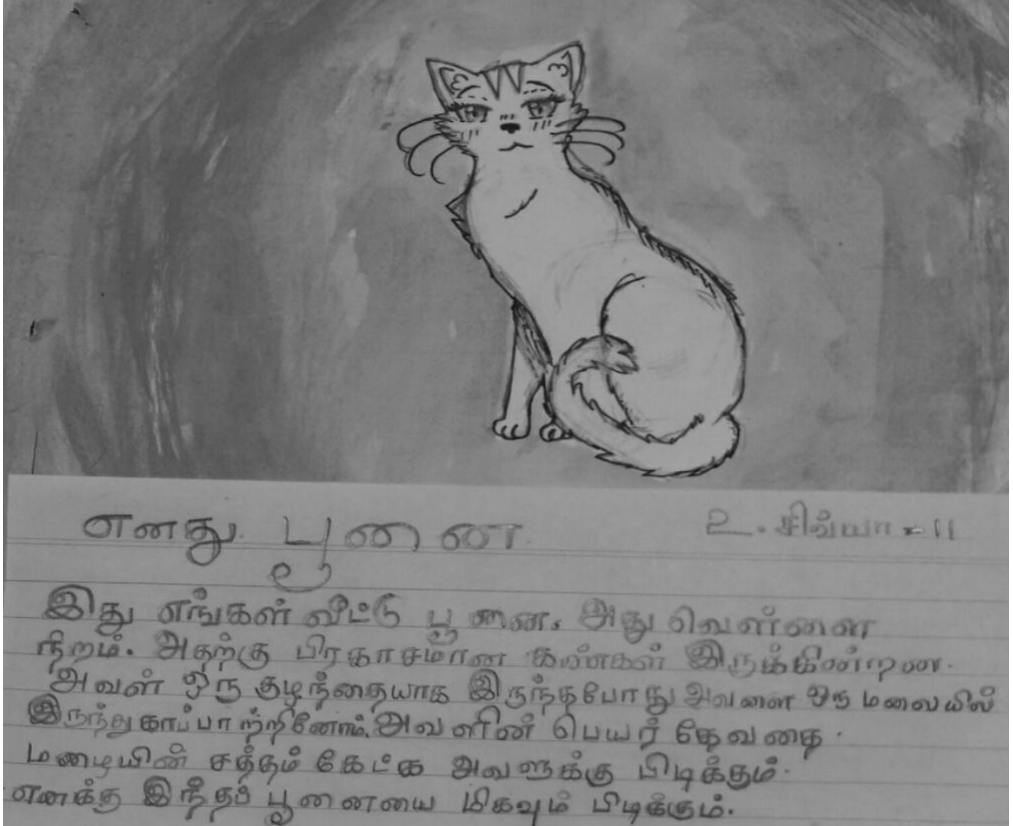 எனது பூனை
உ. சிவ்யா - 11
இது எங்கள் வீட்டு பூனை. அது வெள்ளை
நிறம். அதற்கு பிரகாசமான கண்கள் இருக்கின்றன.
அவள் ஒரு குழந்தையாக இருந்தபோது அவளை ஒரு மலையில்
இருந்து காப்பாற்றினோம். அவளின் பெயர் தேவதை.
மழையின் சத்தம் கேட்க அவளுக்கு பிடிக்கும்.
எனக்கு இந்தப் பூனையை மிகவும் பிடிக்கும்.